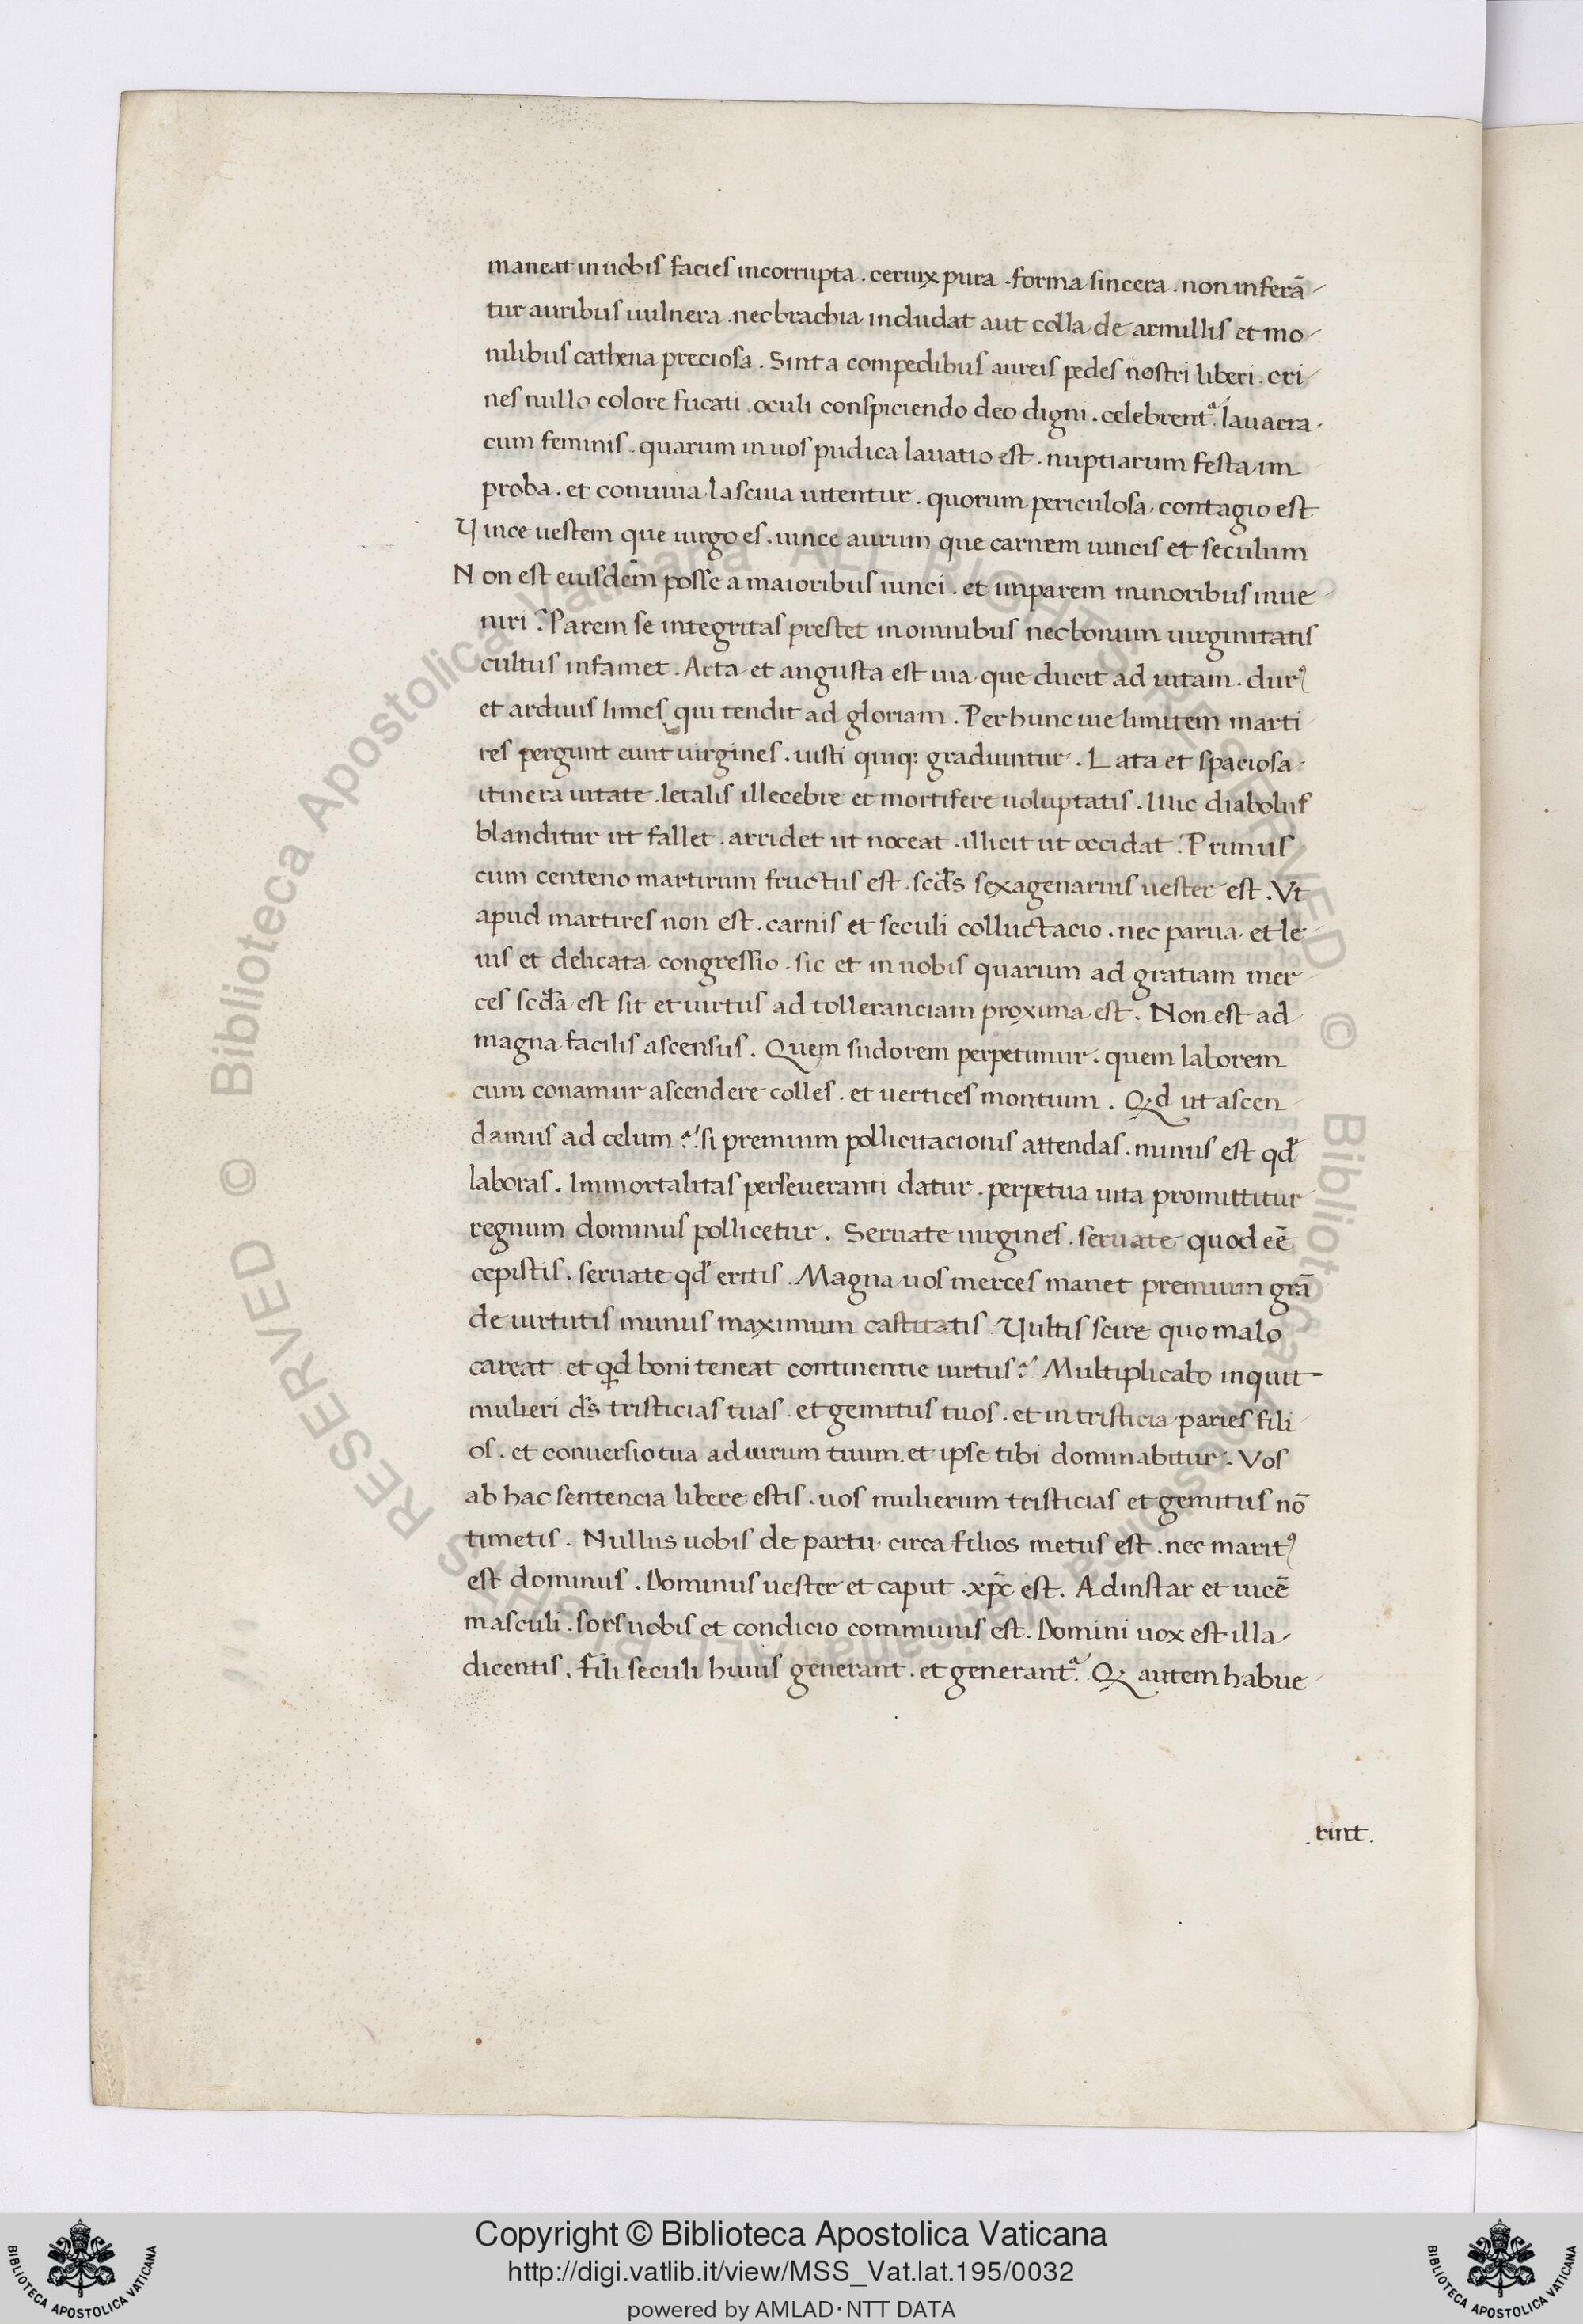 maneat in uobis facies incorrupta . ceruix pura . forma sincera . non inferā
tur auribus uulnera . nec brachia includat aut colla de armillis et mo
nilibus cathena preciosa . Sint a compedibus aureis pedes nostri liberi . cri
nes nullo colore fucati . oculi conspiciendo deo digni . celebrentᵃ lauacra
cum feminis . quarum in uos pudica lauatio est . nuptiarum festa im
proba . et conuiuia lasciua uitentur . quorum periculosa contagio est
Vince uestem que uirgo es . uince aurum que carnem uincis et seculum
Non est eiusdem posse a maioribus uinci . et imparem minoribus inue
niri ? Parem se integritas prestet in omnibus nec bonum uirginitatis
cultus infamet . Arta et angusta est uia que ducit ad uitam . durꝰ
et arduus limes qui tendit ad gloriam . Per hunc uie limitem marti
res pergunt eunt uirgines . iusti quiq: graduintur . Lata et spaciosa
itinera uitate . letalis illecebre et mortifere uoluptatis . Illuc diabolus
blanditur ut fallet . arridet ut noceat . illicit ut occidat . Primus
cum centeno martirum fructus est . scd̄s sexagenarius uester est . Vt
apud martires non est . carnis et seculi colluctacio . nec parua et le
uis et delicata congressio . sic et in uobis quarum ad gratiam mer
ces scd̄a est sit et uirtus ad tolleranciam proxima est . Non est ad
magna facilis ascensus . Quem sudorem perpetimur . quem laborem
cum conamur ascendere colles . et uertices montium . Qd ut ascen
damus ad celum ? si premium pollicitacionis attendas . minus est qd̄
laboras . Immortalitas perseueranti datur . perpetua uita promittitur
regnum dominus pollicetur . Seruate uirgines . seruate quod eē
cepistis . seruate qd̄ eritis . Magna uos merces manet premium grā
de uirtutis munus maximum castitatis . Vultis scire quo malo
careat . et qd boni teneat continentie uirtus ? Multiplicabo inquit
mulieri ds̄ tristicias tuas . et gemitus tuos . et in tristicia paries fili
os . et conuersio tua ad uirum tuum . et ipse tibi dominabitur . Vos
ab hac sentencia libere estis . uos mulierum tristicias et gemitus nō
timetis . Nullus uobis de partu circa filios metus est . nec maritꝰ
est dominus . Dominus uester et caput . xp̄c est . Ad instar et uicē
masculi . sors uobis et condicio communis est . Domini uox est illa
dicentis . fili seculi huius generant . et generantᵃ Q autem habue
. rint .
Copyright © Biblioteca Apostolica Vaticana
http://digi.vatlib.it/view/MSS_Vat.lat.195/0032
powered by AMLAD·NTT DATA
BIBLIOTECA APOSTOLICA VATICANA
BIBLIOTECA APOSTOLICA VATICANA